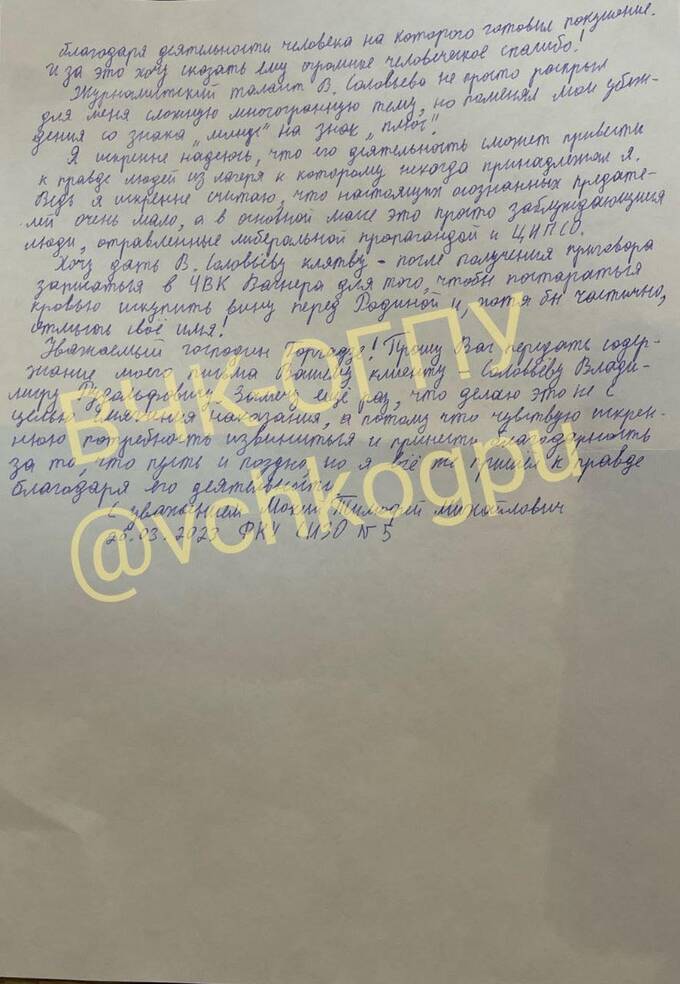 благодаря деятельности человека на которого готовил покушение.
И за это хочу сказать ему огромное человеческое спасибо!
Журналистский талант В. Соловьёва не просто раскрыл
для меня сложную многогранную тему, но поменял мои убеж-
дения со знака "минус" на знак "плюс".
Я искренне надеюсь, что его деятельность сможет привести
к правде людей из лагеря к которому некогда принадлежал я.
Ведь я искренне считаю, что настоящих осознанных предате-
лей очень мало, а в основной массе это просто заблуждающиеся
люди, отравленные либеральной пропагандой и ЦИПСО.
Хочу дать В. Соловьёву клятву - после получения приговора
записаться в ЧВК Вагнера для того, чтобы постараться
кровью искупить вину перед Родиной и, хотя бы частично,
отмыть своё имя!
Уважаемый господин! Прошу Вас передать содер-
жание моего письма Вашему клиенту - Соловьёву Влади-
миру Рудольфовичу. Замечу ещё раз, что делаю это не с
целью снижения наказания, а потому что чувствую искрен-
нюю потребность извиниться и принести благодарность
за то, что пусть и поздно, но я всё же пришёл к правде
благодаря его деятельности
С уважением Тимофей Михайлович
28.03.2023 ФКУ СИЗО №5
ВЧК-ОГПУ
@vchkogpu